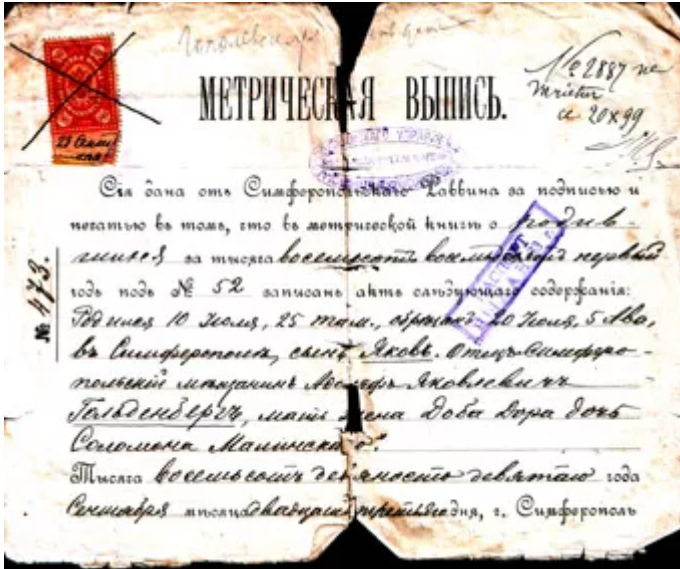 № 2887
20 X 99
МЕТРИЧЕСКАЯ ВЫПИСЬ.
23 Сентя
Сія дана отъ Симферопольскаго Раввина за подписью и
печатью въ томъ, что въ метрической книгѣ о родив-
шихся за тысяча восемьсотъ восемьдесятъ первый
годъ подъ № 52 записанъ актъ слѣдующаго содержанія:
№ 473.
Родился 10 Іюля, 25 обрѣзанъ 20 Іюля, 5 Ава,
въ Симферополѣ, сынъ Яковъ. Отецъ Симферо-
польскій мѣщанинъ Адольфъ Яковлевичъ
Гольденбергъ, мать жена Доба Дора дочь
Соломона Малинскаго.
Тысяча восемьсотъ девяносто девятаго года
Сентября мѣсяца двадцать третьяго дня, г. Симферополь